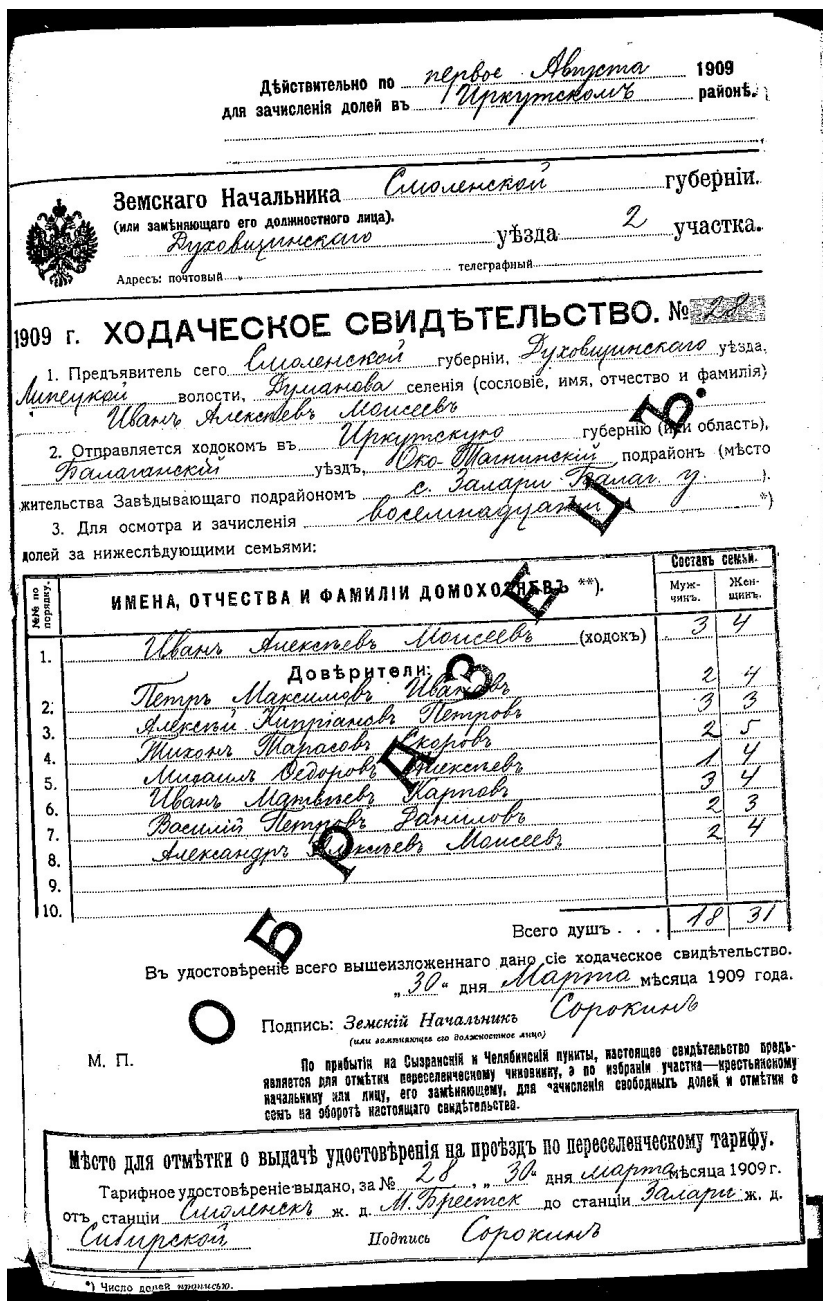 Дѣйствительно по первое Августа 1909
для зачисленія долей въ Иркутскомъ районѣ.
Земскаго Начальника Смоленской губерніи.
(или замѣняющаго его должностного лица).
Духовщинскаго уѣзда 2 участка.
Адресъ: почтовый телеграфный
1909 г. ХОДАЧЕСКОЕ СВИДѢТЕЛЬСТВО. № 28
1. Предъявитель сего Смоленской губерніи, Духовщинскаго уѣзда,
Липецкой волости, Думанова селенія (сословіе, имя, отчество и фамилія)
Иванъ Алексѣевъ Моисеевъ
2. Отправляется ходокомъ въ Иркутскую губернію (или область),
Балаганскій уѣздъ, Око-Тагнинскій подрайонъ (мѣсто
жительства Завѣдывающаго подрайономъ с. Залари Балаг. у. ).
3. Для осмотра и зачисленія восемнадцати *)
долей за нижеслѣдующими семьями:
№№ по порядку. ИМЕНА, ОТЧЕСТВА И ФАМИЛІИ ДОМОХОЗЯЕВЪ **). Составъ семьи.
Муж-чинъ. Жен-щинъ.
1. Иванъ Алексѣевъ Моисеевъ (ходокъ) 3 4
Довѣрители:
2. Петръ Максимовъ Ивановъ 2 4
3. Алексѣй Кипріановъ Петровъ 3 3
4. Тихонъ Тарасовъ 2 5
5. Михаилъ Ѳедоровъ Алексѣевъ 1 4
6. Иванъ Матвѣевъ Карповъ 3 4
7. Василій Петровъ Даниловъ 2 3
8. Александръ Алексѣевъ Моисеевъ 2 4
9.
10.
Всего душъ . . . 18 31
Въ удостовѣреніе всего вышеизложеннаго дано сіе ходаческое свидѣтельство.
„30“ дня Марта мѣсяца 1909 года.
Подпись: Земскій Начальникъ Сорокинъ
(или замѣняющее его должностное лицо)
М. П.
По прибытіи на Сызранскій и Челябинскій пункты, настоящее свидѣтельство предъ-
является для отмѣтки переселенческому чиновнику, а по избраніи участка—крестьянскому
начальнику или лицу, его замѣняющему, для зачисленія свободныхъ долей и отмѣтки о
семъ на оборотѣ настоящаго свидѣтельства.
Мѣсто для отмѣтки о выдачѣ удостовѣренія на проѣздъ по переселенческому тарифу.
Тарифное удостовѣреніе выдано, за № 28, „30“ дня марта мѣсяца 1909 г.
отъ станціи Смоленскъ ж. д. М. Брестск до станціи Залари ж. д.
Сибирской Подпись Сорокинъ
*) Число долей прописью.
ОБРАЗЕЦЪ.